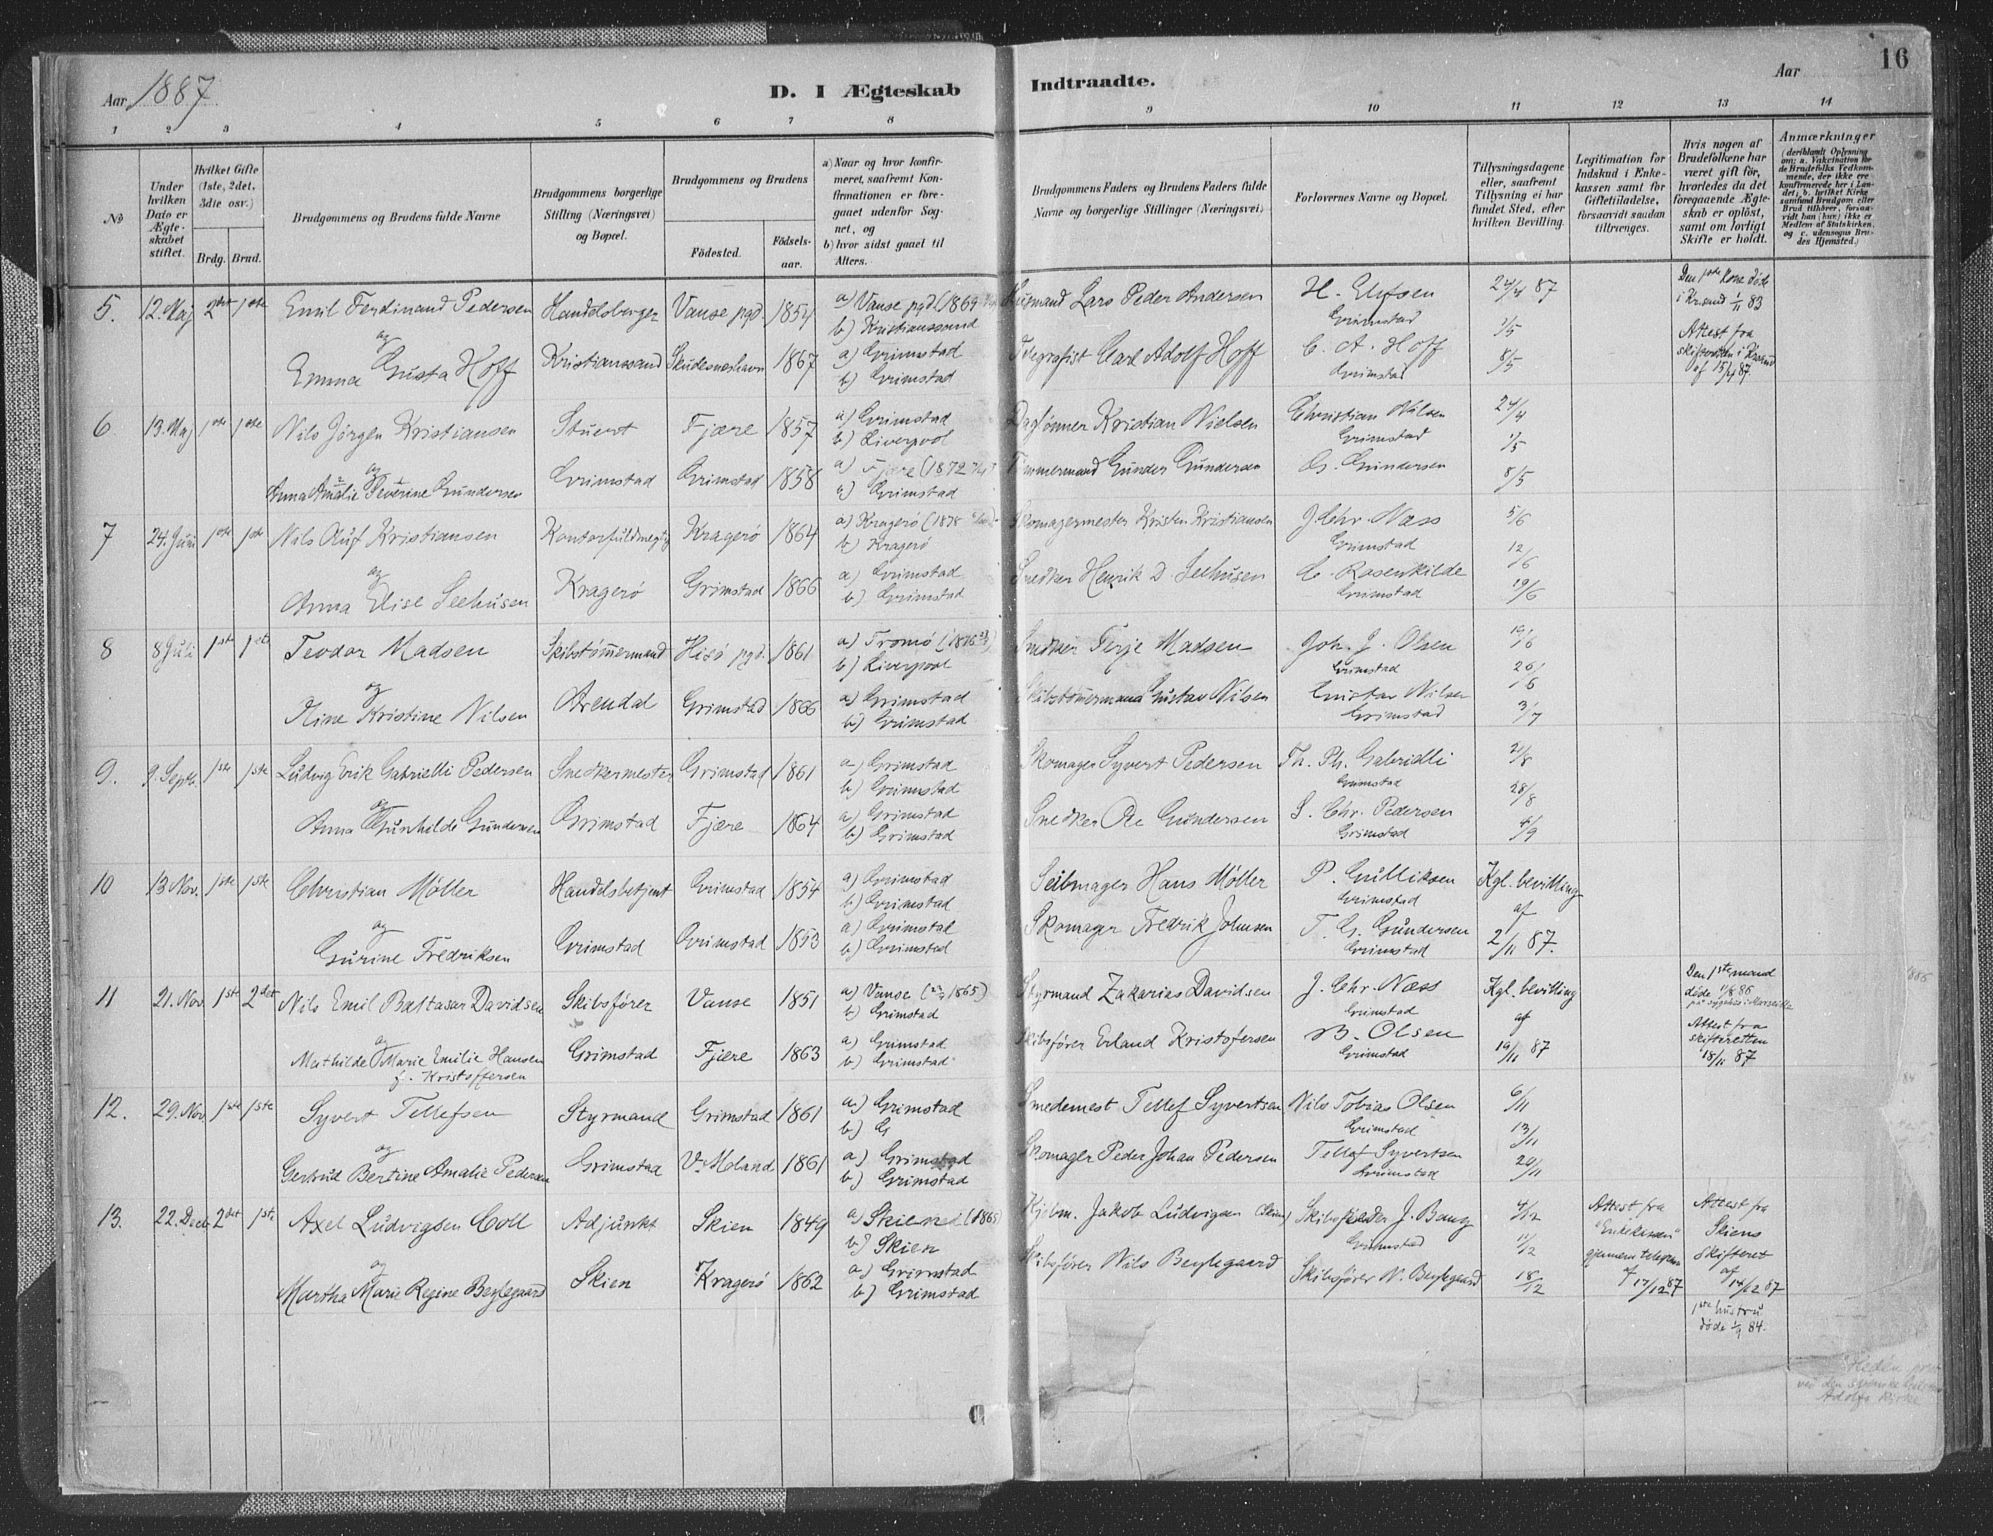 Aar 1887
D. I Ægteskab
Indtraadte.
Aar
16
1 2 3 4 5 6 7 8 9 10 11 12 13 14
№
Under hvilken Dato er Ægteskabet stiftet.
Hvilket Gifte (1ste, 2det, 3die osv.)
Brdg. Brud.
Brudgommens og Brudens fulde Navne
Brudgommens borgerlige Stilling (Næringsvei) og Bopæl.
Brudgommens og Brudens
Födested.
Födselsaar.
a) Naar og hvor konfirmeret, saafremt Konfirmationen er foregaaet udenfor Sognet, og
b) hvor sidst gaaet til Alters.
Brudgommens Faders og Brudens Faders fulde Navne og borgerlige Stillinger (Næringsvei)
Forlovernes Navne og Bopæl.
Tillysningsdagene eller, saafremt Tillysning ei har fundet Sted, efter hvilken Bevilling.
Legitimation for Indskud i Enkekassen samt for Giftetilladelse, forsaavidt saadan tiltrænges.
Hvis nogen af Brudefolkene har været gift för, hvorledes da det foregaaende Ægteskab er oplöst, samt om lovligt Skifte er holdt.
Anmærkninger (deriblandt Oplysning om: a. Vakcination for de Brudefolks Vedkommende, der ikke ere konfirmerede her i Landet; b. hvilket Kirkesamfund Brudgom eller Brud tilhörer, forsaavidt han (hun) ikke er Medlem af Statskirken, og c. udensogns Brudes Hjemsted.)
5. 12. Maj 2det 1ste Emil Ferdinand Pedersen Handelsborger Vanse pgd. 1854 a) Vanse pgd. (1869 Lars Peder Andersen H. Elefsen 24/4 87 Den 1ste Kone döde
b) Kristianssand Grimstad 1/5 i Kr.sand 1/11 83
og
Emma Gusta Hoff Kristianssand Skudesneshavn 1867 a) Grimstad Telegrafist Carl Adolf Hoff C. A. Hoff 8/5 Attest fra
b) Grimstad Grimstad skifteretten i Krsand
af 15/4 87
6. 13. Maj 1ste 1ste Nils Jörgen Kristiansen Stuert Fjære 1857 a) Grimstad Daglönner Kristian Nielsen Christian Nilsen 24/4
b) Liverpool Grimstad 1/5
og
Anna Amalie Severine Gundersen Grimstad Grimstad 1858 a) Fjære (1872 Tömmermand Gunder Gundersen G. Gundersen 8/5
b) Grimstad
7 24. Juni 1ste 1ste Nils Oluf Kristiansen Kontorfuldmegtig Kragerö 1864 a) Kragerö (1878 Skomagermester Kristen Kristiansen J Chr. Næss 5/6
b) Kragerö Grimstad 12/6
og
Anna Elise Seehusen Kragerö Grimstad 1866 a) Grimstad Snedker Henrik D. Seehusen C. Rosenkilde 19/6
b) Grimstad Grimstad
8 8 Juli 1ste 1ste Teodor Madsen Skibstömmermand Hisö pgd. 1861 a) Tromö (1876 Snedker Terje Madsen Joh. J. Olsen 19/6
b) Liverpool Grimstad 26/6
og
Oline Kristine Nilsen Arendal Grimstad 1866 a) Grimstad Skibstömmermand Gustav Nilsen Gustav Nilsen 3/7
b) Grimstad Grimstad
9. 9. Septb. 1ste 1ste Ludvig Erik Gabrielli Pedersen Snedkermester Grimstad 1861 a) Grimstad Skomager Syvert Pedersen Th. Ph. Gabrielli 21/8
b) Grimstad Grimstad 28/8
og
Anna Gunhilde Gundersen Grimstad Fjære 1864 a) Grimstad Snedker Ole Gundersen S. Chr. Pedersen 4/9
b) Grimstad Grimstad
10 13 Nov. 1ste 1ste Christian Möller Handelsbetjent Grimstad 1854 a) Grimstad Seilmager Hans Möller P. Gulliksen Kgl. bevilling
b) Grimstad Grimstad af
og
Gurine Fredriksen Grimstad Grimstad 1853 a) Grimstad Skomager Fredrik Johnsen T. G. Gundersen 2/11 87.
b) Grimstad Grimstad
11 21. Nov 1ste 2det Nils Emil Baltasar Davidsen Skibsförer Vanse 1851 a) Vanse (1865) Styrmand Zakarias Davidsen J. Chr. Næss Kgl. bevilling Den 1ste mand
b) Grimstad Grimstad af döde 1/8 86
på sygehus i Marseille
og
Mathilde Marie Emilie Hansen Grimstad Fjære 1863 a) Grimstad Skibsförer Erland Kristofersen B. Olsen 19/11 87 Attest fra
f. Kristoffersen b) Grimstad Grimstad skifteretten
18/11 87
12. 29. Nov 1ste 1ste Syvert Tellefsen Styrmand Grimstad 1861 a) Grimstad Smedemest Tellef Syvertsen Nils Tobias Olsen 6/11
b) G Grimstad 13/11
og
Gertrud Bertine Amalie Pedersen Grimstad V. Moland 1861 a) Grimstad Skomager Peder Johan Pedersen Tellef Syvertsen 20/11
b) Grimstad Grimstad
13. 22. Decb 2det 1ste Axel Ludvigsen Coll Adjunkt Skien 1849 a) Skien (1865 Kjöbm. Jakob Ludvigsen (Skien) J. Bang 4/12 Attest fra Attest fra
b) Skien Grimstad 11/12 "Enkekassen" Skiens
og
Martha Marie Regine Beylegaard Skien Kragerö 1862 a) Grimstad Skibsförer Nils Beylegaard Skibsförer N. Beylegaard 18/12 gjennem telegram Skifteret
b) Grimstad af 17/12 87 af 14/12 87
1ste hustru
döde 1/9 84.